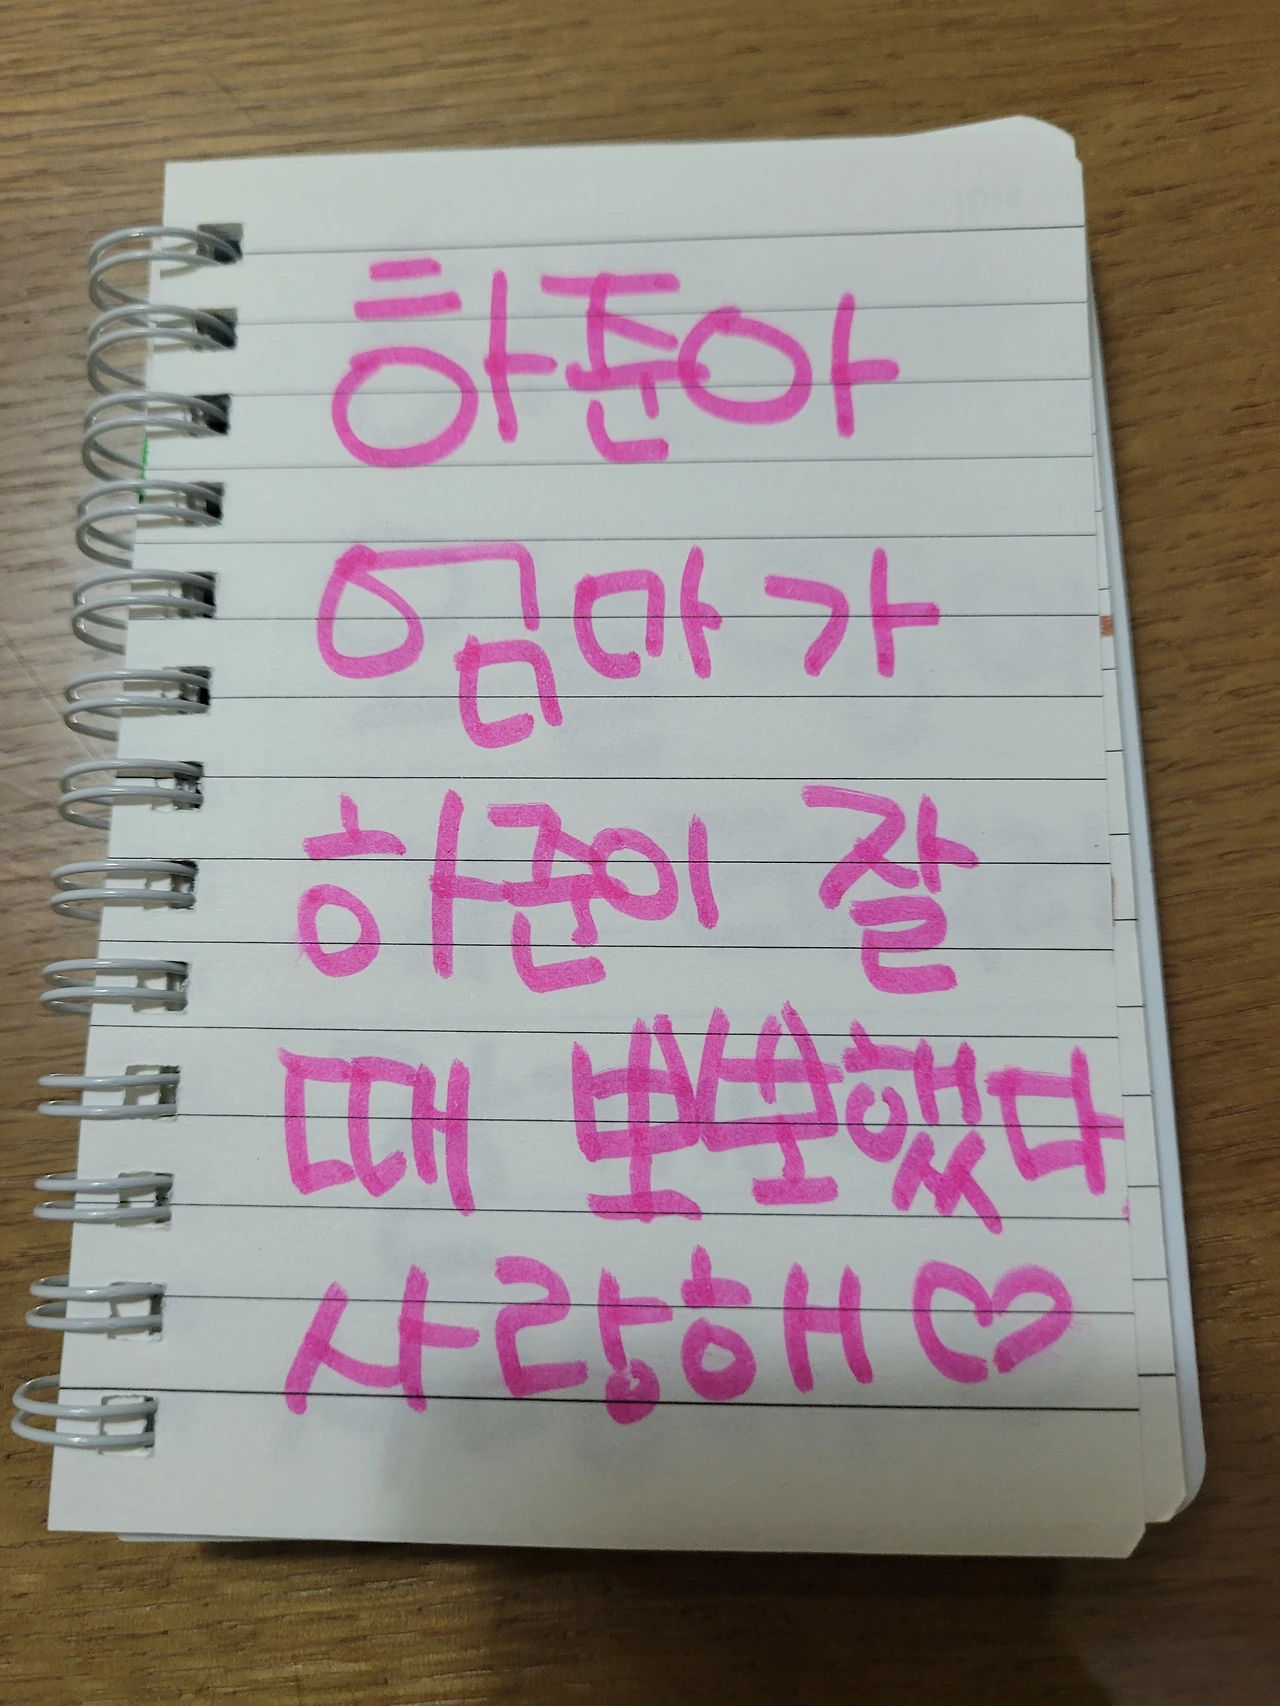 하준아
엄마가
하준이 잘
때 뽀뽀했다
사랑해♡